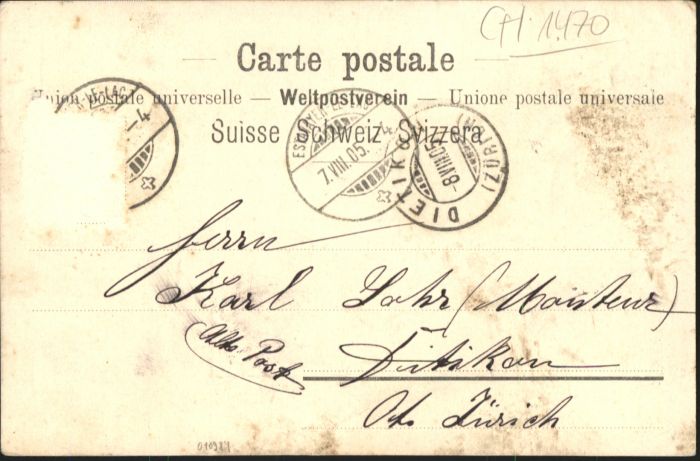 CH 1470
Carte postale
Union postale universelle — Weltpostverein — Unione postale universale
Suisse Schweiz Svizzera
7.VIII.05.
DIETIKON (ZÜRICH)
Herrn
Karl Lohr (Monteur)
(Alte Post)
Ditikon
Ct. Zürich